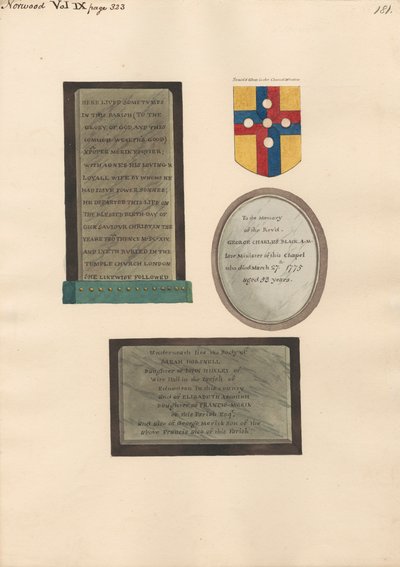 Norwood Vol IX page 323
181.
HERE LIVED SOMETYMES
IN THIS PARISH (TO THE
GLORY OF GOD AND THIS
COMMON WEALTHS GOOD)
WITH AGNES HIS LOVING &
LOYALL WIFE BY WHOME HE
HAD ISUE FOWER SONNES;
HE DEPARTED THIS LIFE ON
THE BLESSED BIRTH-DAY OF
OUR SAVIOUR CHRIST IN THE
YEARE
AND LYETH BURIED IN THE
TEMPLE CHURCH LONDON
SHE LIKEWISE FOLLOWED
To the Memory
of the Revd.
GEORGE CHARLES BLACK A.M.
late Minister of this Chapel
who died March 27th 1775
aged 53 years.
Underneath lies the Body of
SARAH
Daughter of JOHN HUXLEY of
Wire Hall in the Parish of
Edmonton In this county
And of ELIZABETH
Daughter of FRANCIS
of this Parish Esqr.
And Sister of George Merick Son of the
Above Francis Also of this Parish